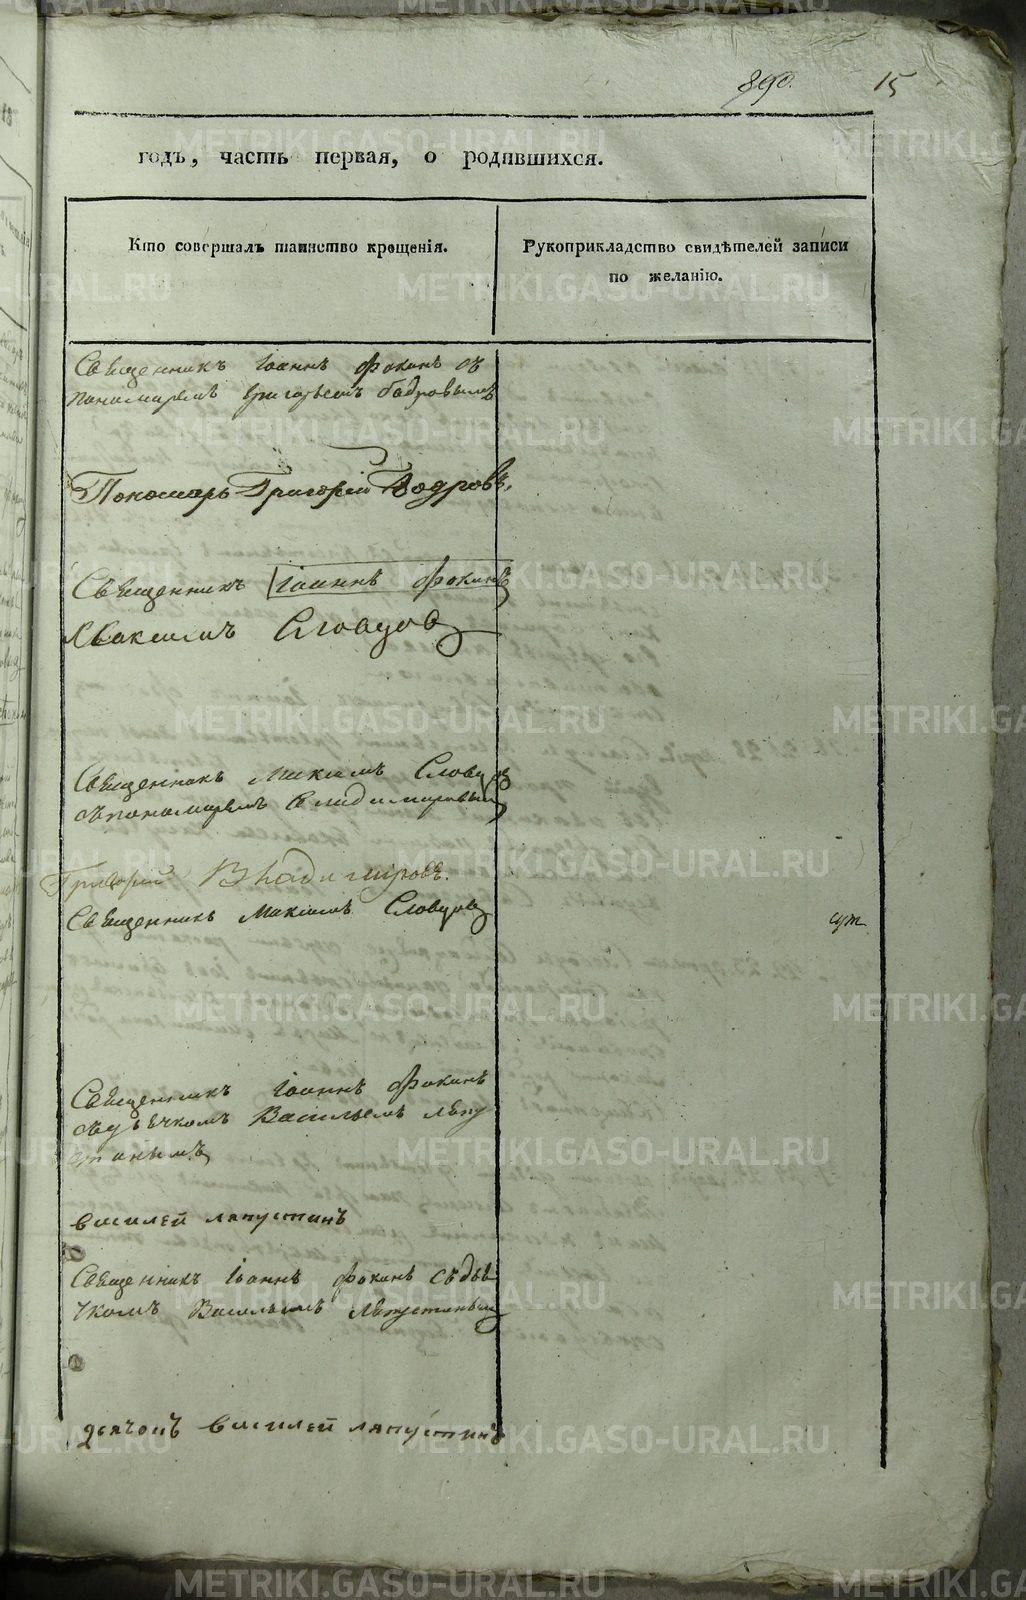 890. 15
годъ, часть первая, о родившихся.
Кто совершалъ таинство крещенія.
Рукоприкладство свидѣтелей записи
по желанію.
Священникъ Іоаннъ Фокинъ съ
пономаремъ Григорьемъ Бодровымъ
Пономарь Григорій Бодровъ.
Священникъ Іоаннъ Фокинъ
Максимъ Словцовъ
Священникъ Максимъ Словцов
съ пономаремъ Владимировым
Григорій Владимировъ.
Священникъ Максимъ Словцовъ
Священникъ Іоаннъ Фокинъ
съ дьечкомъ Васильемъ Лепу
стинымъ
василей ляпустинъ
Священникъ Іоаннъ Фокинъ съ дье
чкомъ Васильемъ Лепустиным
дьячокъ василей ляпустинъ
METRIKI.GASO-URAL.RU